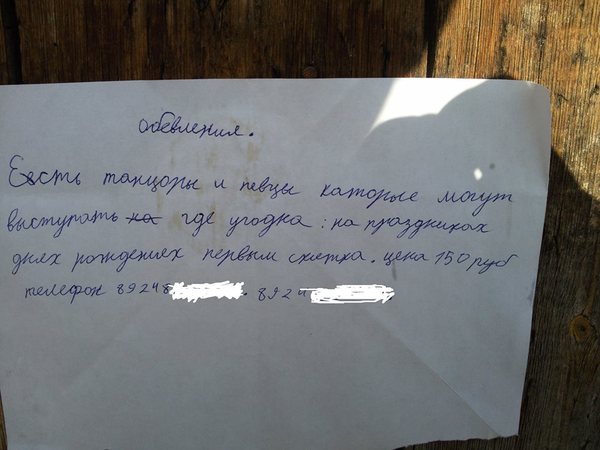 обевления.
Есть танцоры и певцы каторые могут
выступать на где угодна: на праздниках
днях рождениех первым скетка. цена 150 руб
телефон 89248 . 8924